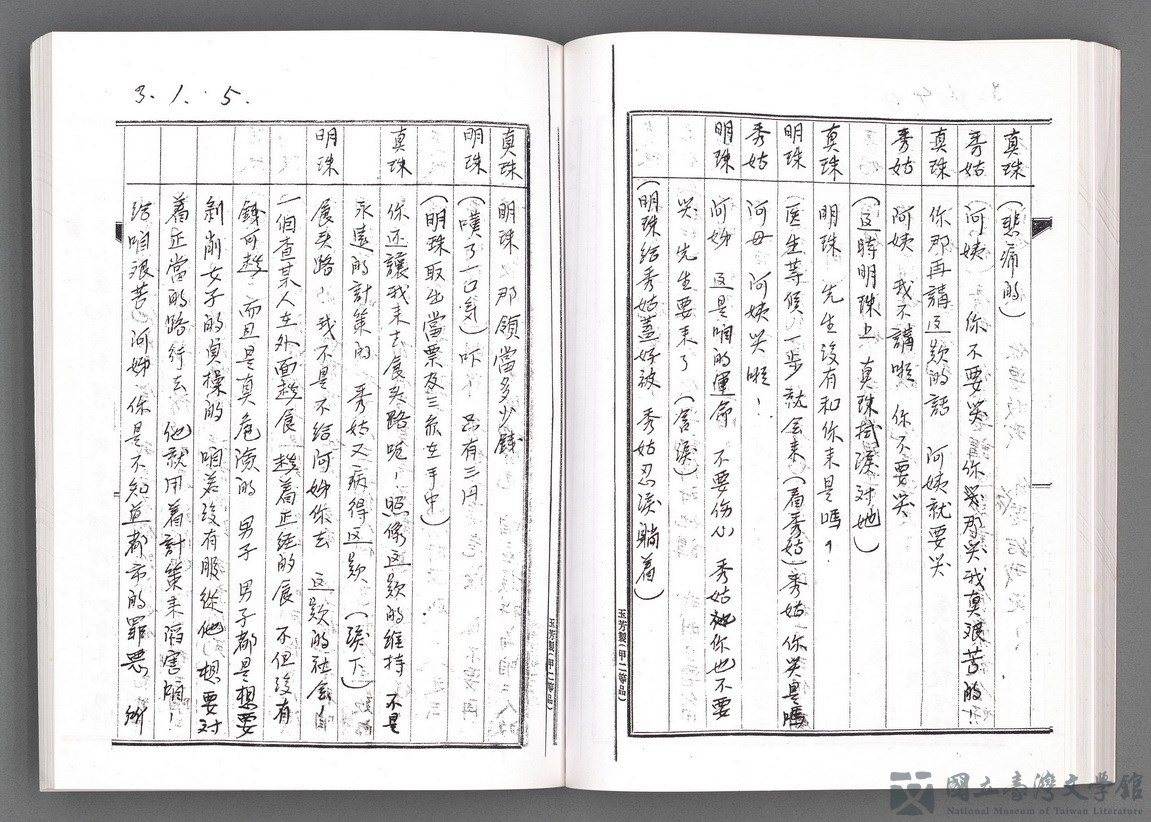 真珠 (悲痛的)
秀姑 (阿姨)你不要哭 你哭那哭我真艰苦的!
真珠 你那再講這欵的話 阿姨就要哭
秀姑 阿姨 我不講啦 你不要哭
(這時明珠上 真珠拭淚对她)
真珠 明珠 先生沒有和你来是嗎?
明珠 (医生等候一步就会来(看秀姑)秀姑 你哭是嗎
秀姑 阿母 阿姨哭啦!
明珠 阿姊 這是咱的運命 不要伤心 秀姑她你也不要
哭 先生要来了 (含淚)
(明珠给秀姑蓋好被 秀姑忍淚躺着)
玉芳製(甲二等品)
3.1.5.
真珠 明珠 那領當多少錢
明珠 (嘆了一口氣)吓 只有三円
(明珠取出當票及三元在手中)
真珠 你还讓我来去食头路呢 照像這欵的維持 不是
永遠的計策的 秀姑又病得這欵 (淚下)
明珠 食头路 我不是不给阿姊你去 這欵的社会
一個查某人在外面趁食 趁着正经的食 不但没有
錢可趁 而且是真危險的 男子 男子都是想要
剝削女子的貞操的 咱若没有服從他 想要对
着正當的路行去 他就用着計策来陷害咱!
给咱艰苦 阿姊 你是不知道都市的罪悪 所
玉芳製(甲二等品)
國立臺灣文學館
National Museum of Taiwan Literature